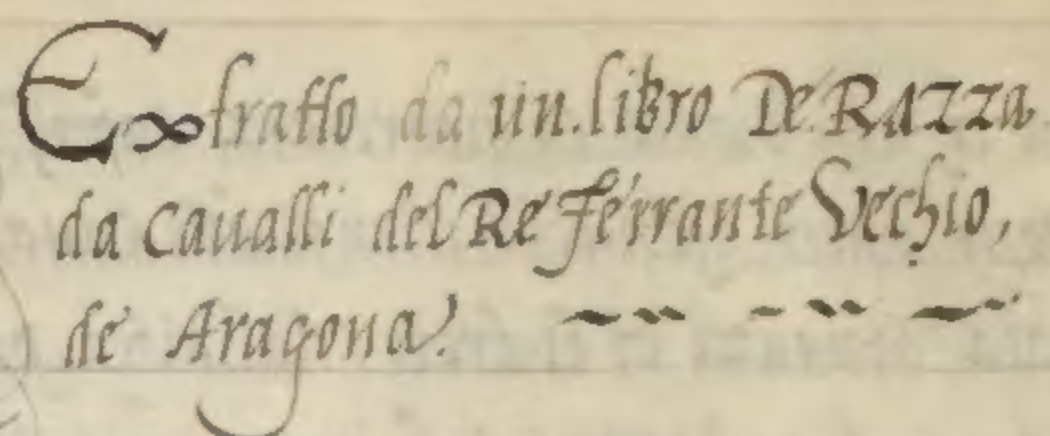 Estratto da un libro De RAZZa
da Cavalli del Re Ferrante Vechio,
de Aragona.